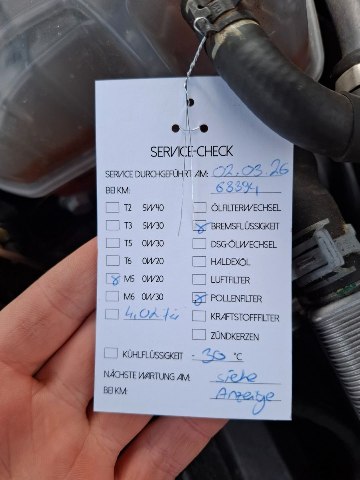 SERVICE-CHECK
SERVICE DURCHGEFÜHRT AM: 02.03.26
BEI KM: 63394
T2 5W40 ÖLFILTERWECHSEL
T3 5W30 BREMSFLÜSSIGKEIT
T5 0W30 DSG-ÖLWECHSEL
T6 0W20 HALDEXÖL
M5 0W20 LUFTFILTER
M6 0W30 POLLENFILTER
4,0 KRAFTSTOFFFILTER
ZÜNDKERZEN
KÜHLFLÜSSIGKEIT - 30 °C
NÄCHSTE WARTUNG AM: siehe
BEI KM: Anzeige